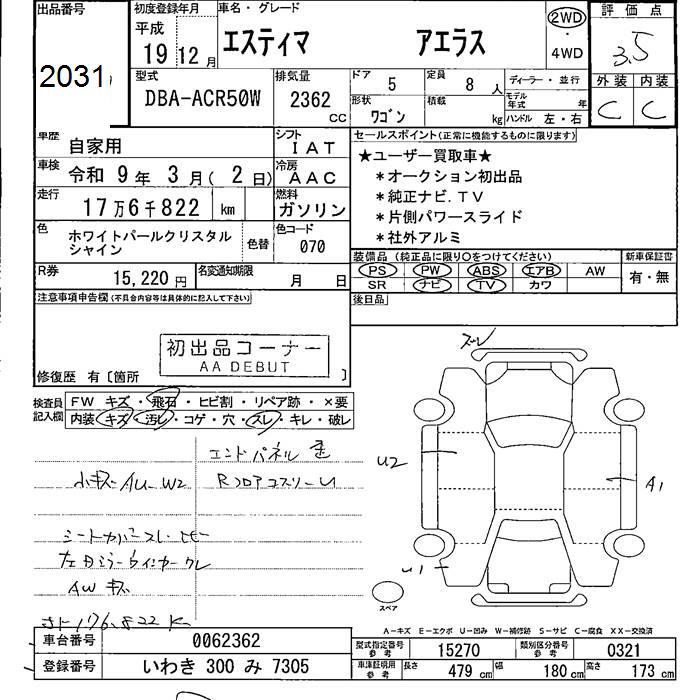 出品番号
2031
初度登録年月
平成
19 12 月
車名・グレード
エスティマ アエラス
2WD
・
4WD
評価点
3.5
型式
DBA-ACR50W
排気量
2362 cc
ドア 5
定員 8 人
形状 ワゴン
積載 kg
ディーラー・並行
モデル年式 年
ハンドル 左・右
外装 内装
C C
車歴 自家用
シフト IAT
車検 令和 9 年 3 月( 2 日)
冷房 AAC
走行 17万6千822 km
燃料 ガソリン
色 ホワイトパールクリスタル
シャイン
色替
色コード 070
R券 15,220 円
名変通知期限 月 日
セールスポイント(正常に機能するものに限ります)
★ユーザー買取車★
*オークション初出品
*純正ナビ.TV
*片側パワースライド
*社外アルミ
装備品 (純正品に限り○をつけてください)
PS PW ABS エアB AW
SR ナビ TV カワ
新車保証書
有・無
後日品
注意事項申告欄(不具合内容等は具体的に記入して下さい)
初出品コーナー
AA DEBUT
修復歴 有〔箇所 〕
検査員記入欄
FW キズ・飛石・ヒビ割・リペア跡・×要
内装・キズ・汚レ・コゲ・穴・スレ・キレ・破レ
エンドパネル 歪
小キズ AU-W2
Rフロアコスリ-U
AW キズ
176.822 K
ズレ
U2
A1
U1
スペア
A-キズ E-エクボ U-凹み W-補修跡 S-サビ C-腐食 XX-交換済
車台番号 0062362
登録番号 いわき 300 み 7305
型式指定番号 参考 15270
類別区分番号 参考 0321
車庫証明用 参考 長さ 479 cm 幅 180 cm 高さ 173 cm